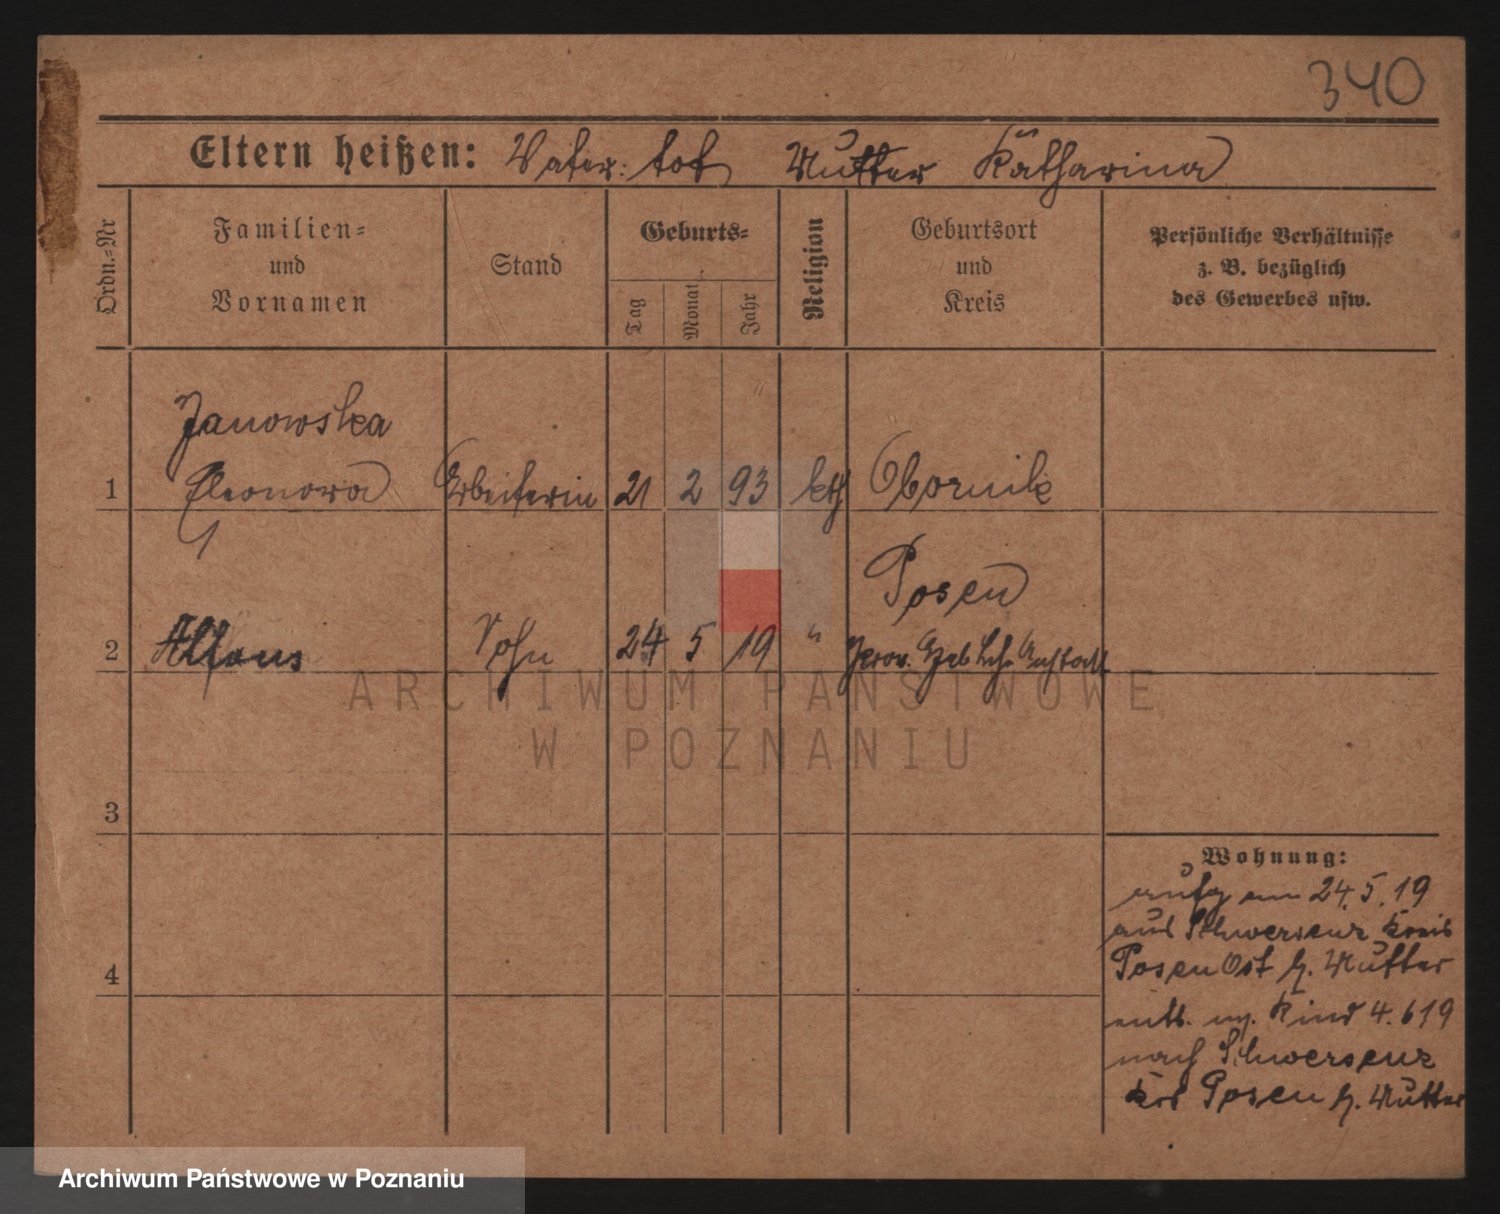 340
Eltern heißen: Vater: tot Mutter Katharina
Ordn.-Nr
Familien-
und
Vornamen
Stand
Geburts-
Tag
Monat
Jahr
Religion
Geburtsort
und
Kreis
Persönliche Verhältnisse
z. B. bezüglich
des Gewerbes usw.
Janowska
1 Eleonora Arbeiterin 21 2 93 kth Obornik
Posen
2 Alfons Sohn 24 5 19 " Prov. Heb Lehr Anstalt
ARCHIWUM PAŃSTWOWE
W POZNANIU
3
Wohnung:
aufg am 24.5.19
aus Schwersenz Kreis
Posen Ost z. Mutter
4
entl. m. Kind 4.6 19
nach Schwersenz
Krs Posen z. Mutter
Archiwum Państwowe w Poznaniu